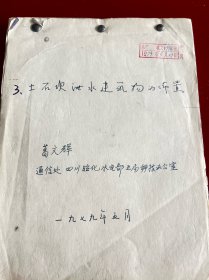 3、土石坝泄水建筑物的布置
葛文辉
通信处 四川 水电部五局科技办公室
一九七九年五月